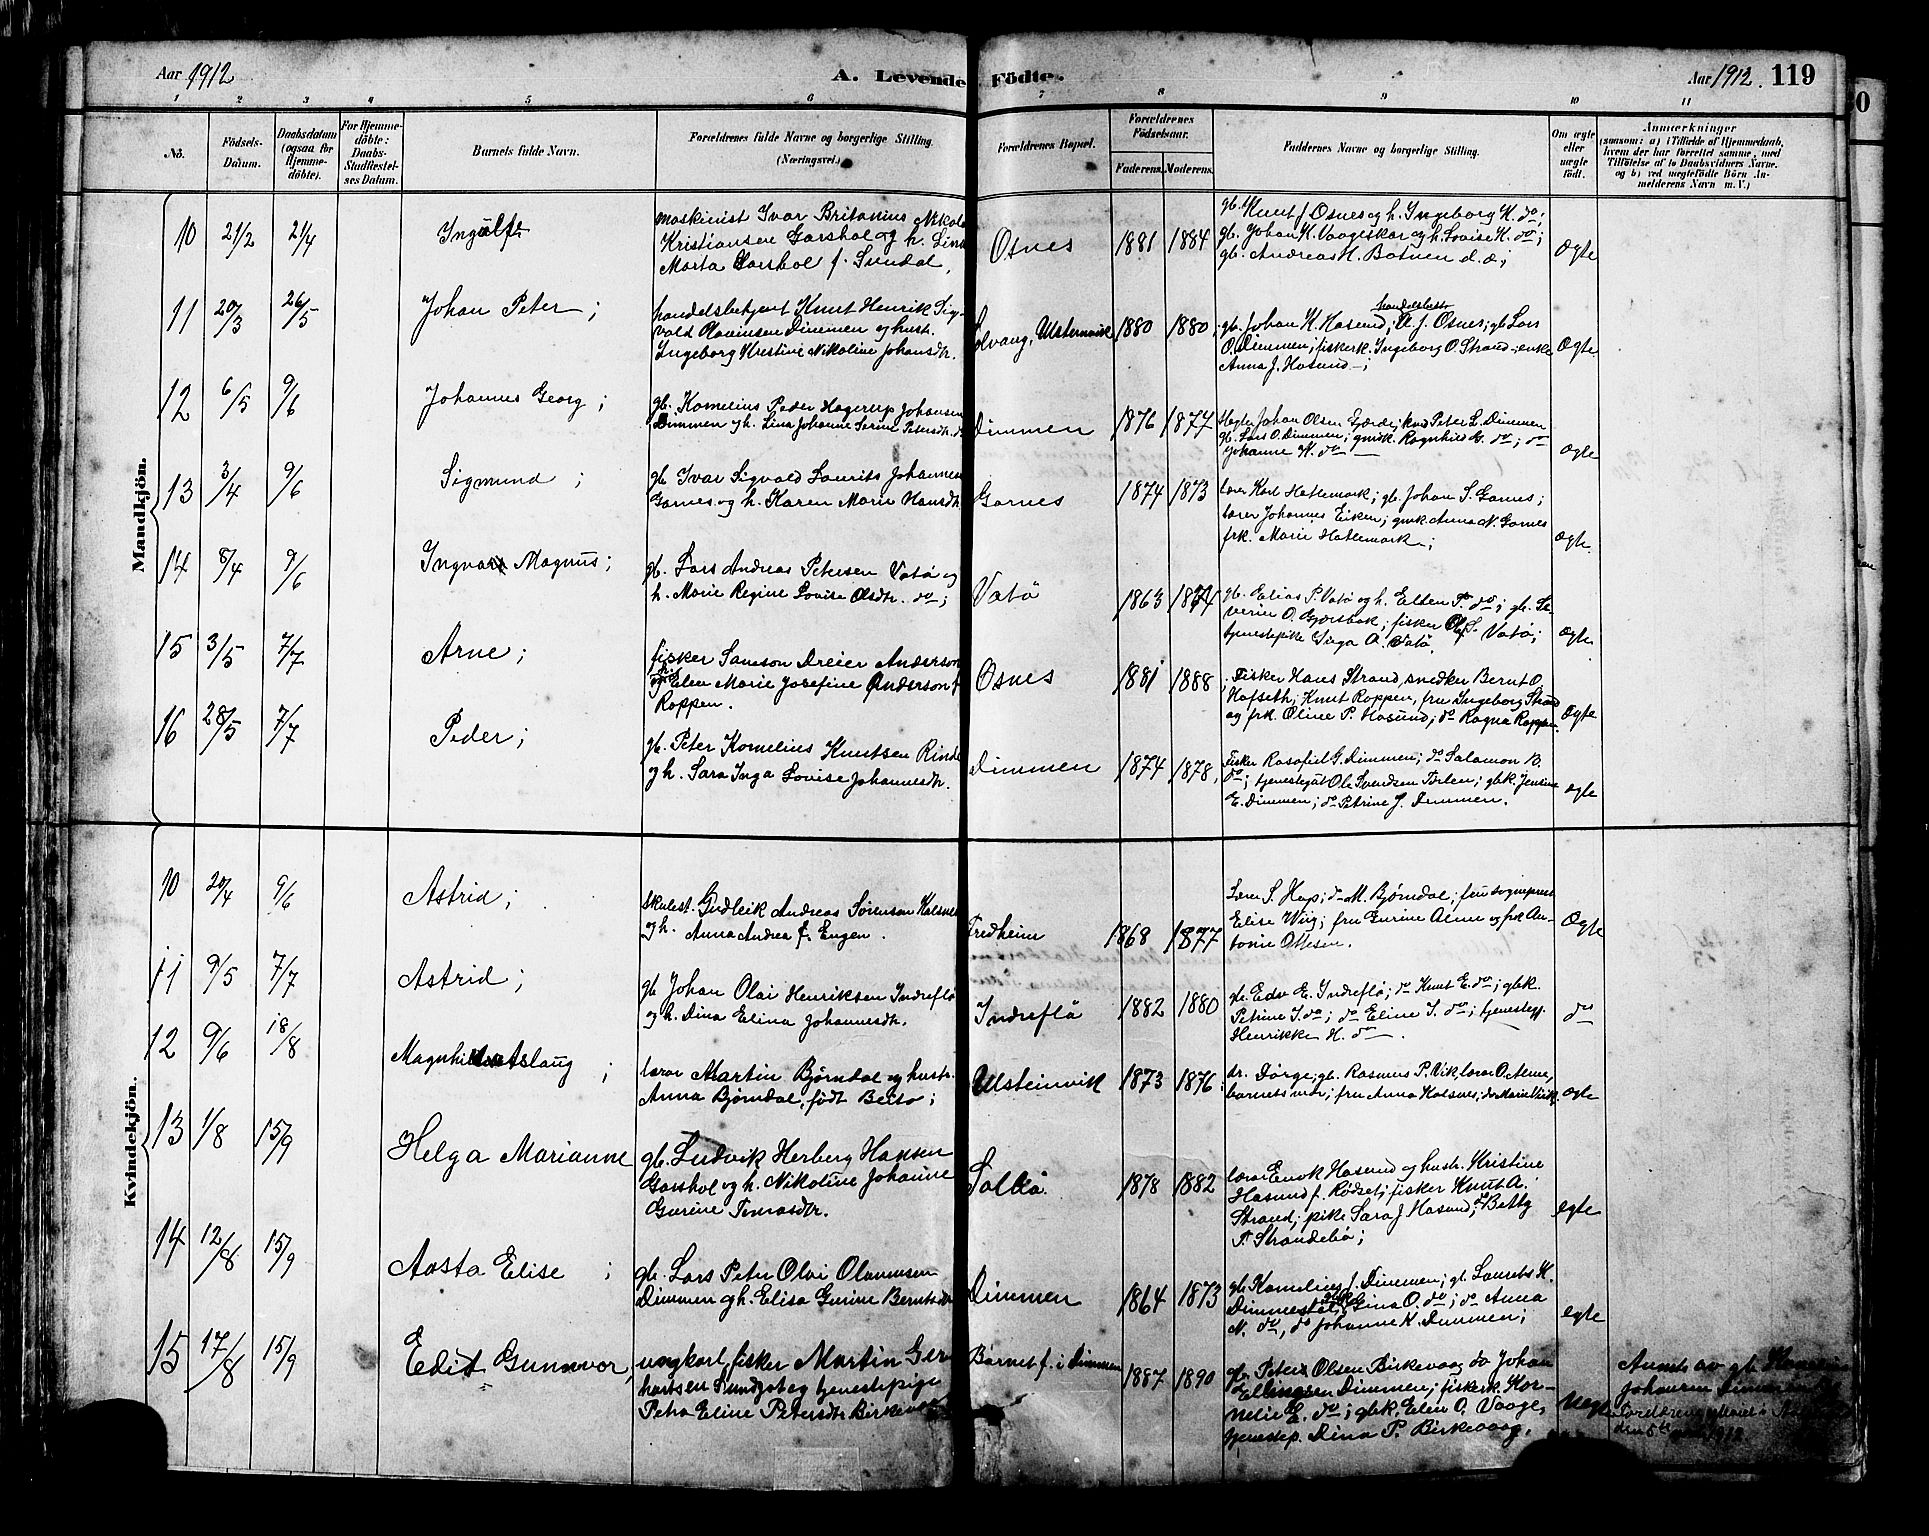 Aar 1912
A. Levende Födte.
Aar 1912. 119
1 2 3 4 5 6 7 8 9 10 11
No.
Födsels-
Datum.
Daabsdatum
(ogsaa for
Hjemme-
döbte).
For Hjemme-
döbte:
Daabs-
Stadfæstel-
ses Datum.
Barnets fulde Navn.
Forældrenes fulde Navne og borgerlige Stilling.
(Næringsvei.)
Forældrenes Bopæl.
Forældrenes
Födselsaar.
Faderens. Moderens.
Faddernes Navne og borgerlige Stilling.
Om ægte
eller
uægte
født.
Anmærkninger
(saasom: a) i Tilfælde af Hjemmedaab,
hvem der har forrettet samme, med
Tilföielse af to Daabsvidners Navne,
og b) ved uegtefödte Börn An-
melderens Navn m. V.)
Mandkjön.
10 21/2 21/4 Ingulf
maskinist Ivar Britanius Nikolai
Kristiansen Garshol og h. Lina
Marta Garshol f. Sundal,
Osnes 1881 1884
gb. Knut J Osnes og h. Ingeborg K. do;
gb. Johan K. Vaageskar og h. Lovise K. do;
gb. Andreas H. Botnen d. æ;
ægte
11 20/3 26/5 Johan Peter;
handelsbetjent Knut Henrik Sig-
vald Olavinsen Dimmen og hust.
Ingeborg Kristine Nikoline Johansdtr.
Solvang, Ulsteinvik 1880 1880
gb. Johan K. Hasund; J. Osnes; gb Lars
O. Dimmen; fiskerk. Ingeborg O. Strand; enke
Anna J. Hasund;
Ægte
12 6/5 9/6 Johannes Georg;
gb. Kornelius Peder Hagerup Johansen
Dimmen og h. Lina Johanne Serine Petersdtr.
Dimmen 1876 1877
Johan Olsen Gjærde; Peter L. Dimmen
gb. Lars O. Dimmen; gmk. Ragnhild G. do; do
Johanne K. do
ægte
13 3/4 9/6 Sigmund;
gb. Ivar Sigvald Laurits Johannesen
Garnes og h. Karen Marie Hansdtr.
Garnes 1874 1873
lærer Karl Hatlemark; gb. Johan S. Garnes;
lærer Johannes Eiken; gmk. Anna N. Garnes
frk. Marie Hatlemark;
ægte.
14 8/4 9/6 Ingvar Magnus;
gb. Lars Andreas Petersen Vatö og
h. Marie Regine Lovise Olsdtr. do;
Vatö 1863 1874
gb. Elias P. Vatö og h. Ellen P. do; gb. Se-
verin O. Gjærsbak; fisker Ole S. Vatö;
tjenestepike Inga A. Vatö.
ægte
15 3/5 7/7 Arne;
fisker Samson Dreier Anderson
og Elen Marie Josefine Anderson f
Roppen.
Osnes 1881 1888
Fisker Hans Strand, snedker Bernt O.
Hofseth; Knut Roppen, fru Ingeborg Strand
og frk. Oline P. Hasund; do Ragna Roppen.
Ægte
16 28/5 7/7 Peder;
gb. Peter Kornelius Knutsen Rinde
og h. Sara Inga Lovise Johannesdtr.
Dimmen 1874 1878,
Fisker Rasafiel G. Dimmen; do Salamon B.
do; tjenestegut Ole Svendsen; gbk. Jensine
E. Dimmen; do Petrine J. Dimmen.
ægte
Kvindekjön.
10 20/4 9/6 Astrid;
skulest. Gudleik Andreas Sørensen Kalsnes
og h. Anna Andrea f. Engen.
Fredheim 1868 1877
Lærer S. Hop; do M. Bjørndal; fru sogneprest
Elise Wiig; fru Gurine Alme og frk An-
tonie Ottesen.
Ægte
11 9/5 7/7 Astrid;
gb Johan Olai Henriksen Indreflø
og h. Dina Elina Johannesdtr.
Indreflø 1882 1880
gb. Edv E. Indreflø; do Knut E. do; gbk.
Petrine I. do; do Eline I. do; tjenestepg.
Henrikke H. do.
do
12 9/6 18/8 Magnhild Aslaug;
lærer Martin Bjørndal og hustr.
Anna Bjørndal, født Beito;
Ulsteinvik 1873 1876;
dr. Dørge; gb. Rasmus P. Vik, lærer O. Alme,
barnets mor; fru Anna Kalsnes; do Marie Viik;
ægte
13 1/8 15/9 Helga Marianne
gb. Ludvik Herberg Hansen
Garshol og h. Nikoline Johanne
Gurine Tomasdtr.
1878 1882
lærer Enok Hasund og hustr. Kristine
Hasund f. Rødset; fisker Knut A.
Strand; pike Sara J Hasund; do Betty
P. Strandebø;
egte
14 12/8 15/9 Aasta Elise;
gb. Lars Peter Olai Olavensen
Dimmen og h. Elisa Gurine Berntsdtr
Dimmen 1864 1873
gb. Kornelius J. Dimmen; gb. Laurits K.
Gina O. do; do Anna
N. do, do Johanne K. Dimmen;
egte
15 17/8 15/9 Edit Gunnvor,
ungkarl, fisker Martin Ger-
hartsen Sundgot og tjenestepige
Petra Eline Petersdtr. Birkevaag
Barnet f. i Dimmen 1887 1890
gb. Peter Olsen Birkevaag do Johan
Ellingsen Dimmen; fiskerk. Kor-
nelie L. do; gbk. Elen O. Vaage,
tjenestep. Dina P. Birkevaag.
Uegte
Anm. av gb.
Johansen Dimmen
1912